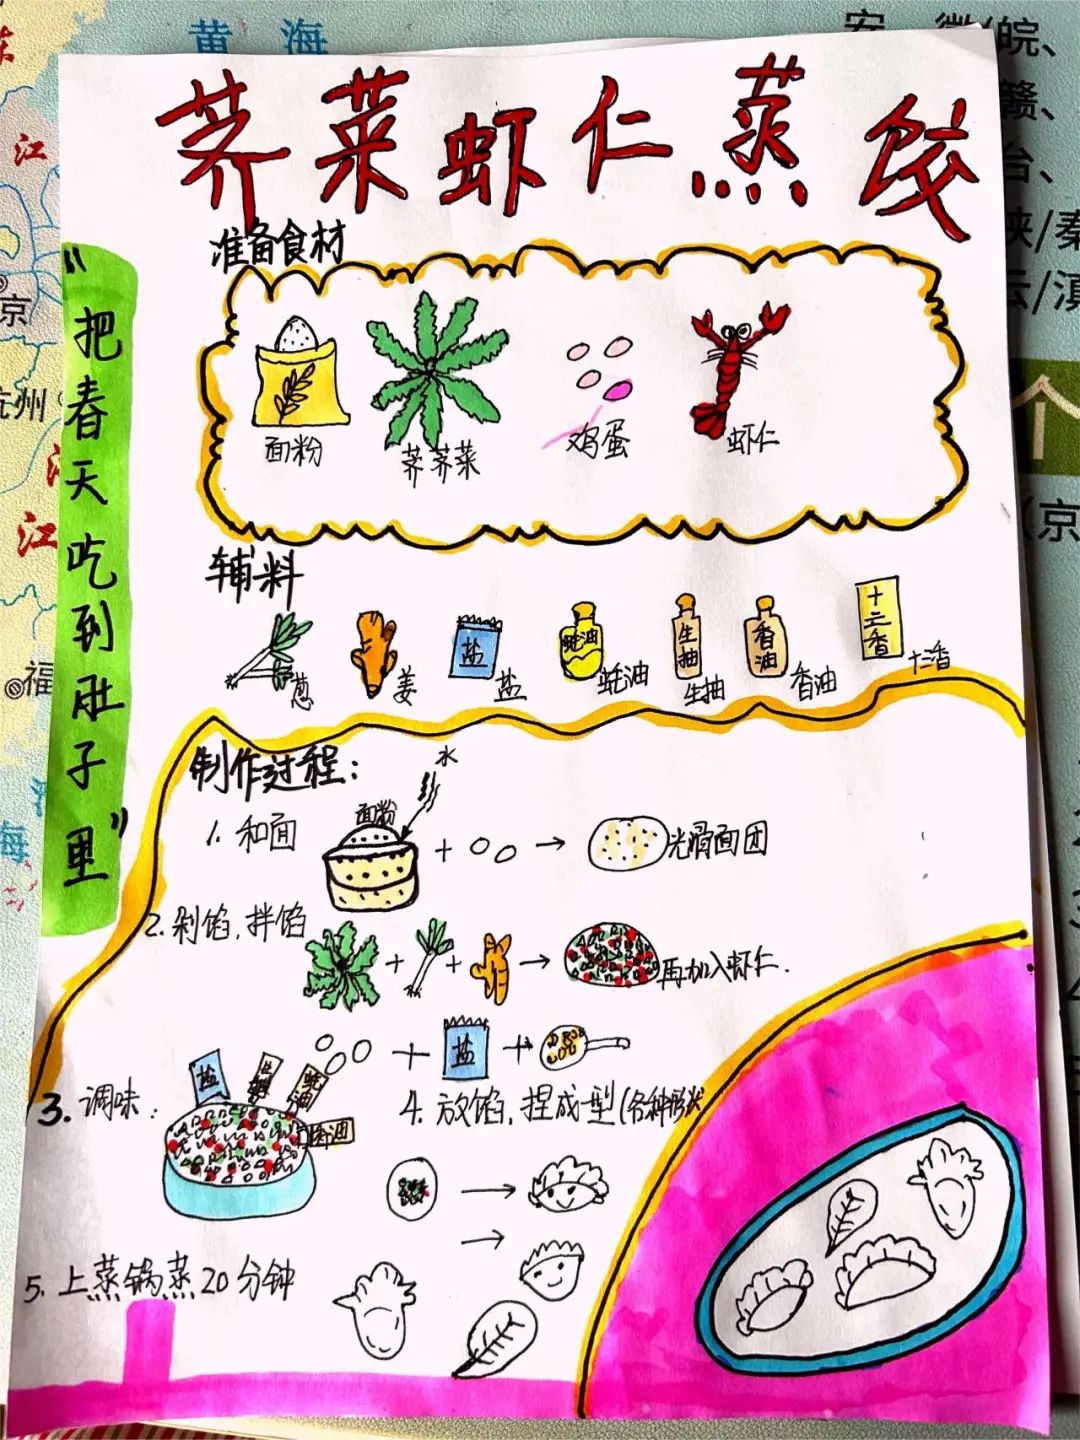 黄海
安 徽/皖、
赣、
台、
陕/秦
云/滇
个
(京
江
京
杭州
江
福
海
荠菜虾仁蒸饺
"把春天吃到肚子里"
准备食材
面粉
荠荠菜
鸡蛋
虾仁
辅料
盐
蚝油
生抽
香油
十三香
葱
姜
盐
蚝油
生抽
香油
十三香
制作过程:
水
1. 和面
面粉
光滑面团
2. 剁馅,拌馅
再加入虾仁.
盐
3. 调味:
盐
生抽
蚝油
香油
4. 放馅,捏成型(各种形状
5. 上蒸锅蒸20分钟